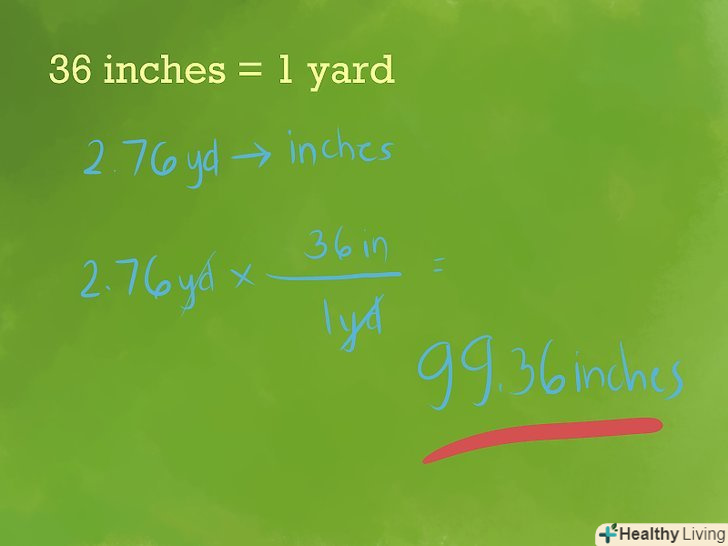 36 inches = 1 yard
2.76 yd → inches
2.76 yd × 36 in =
1 yd
99.36 inches
Healthy Living